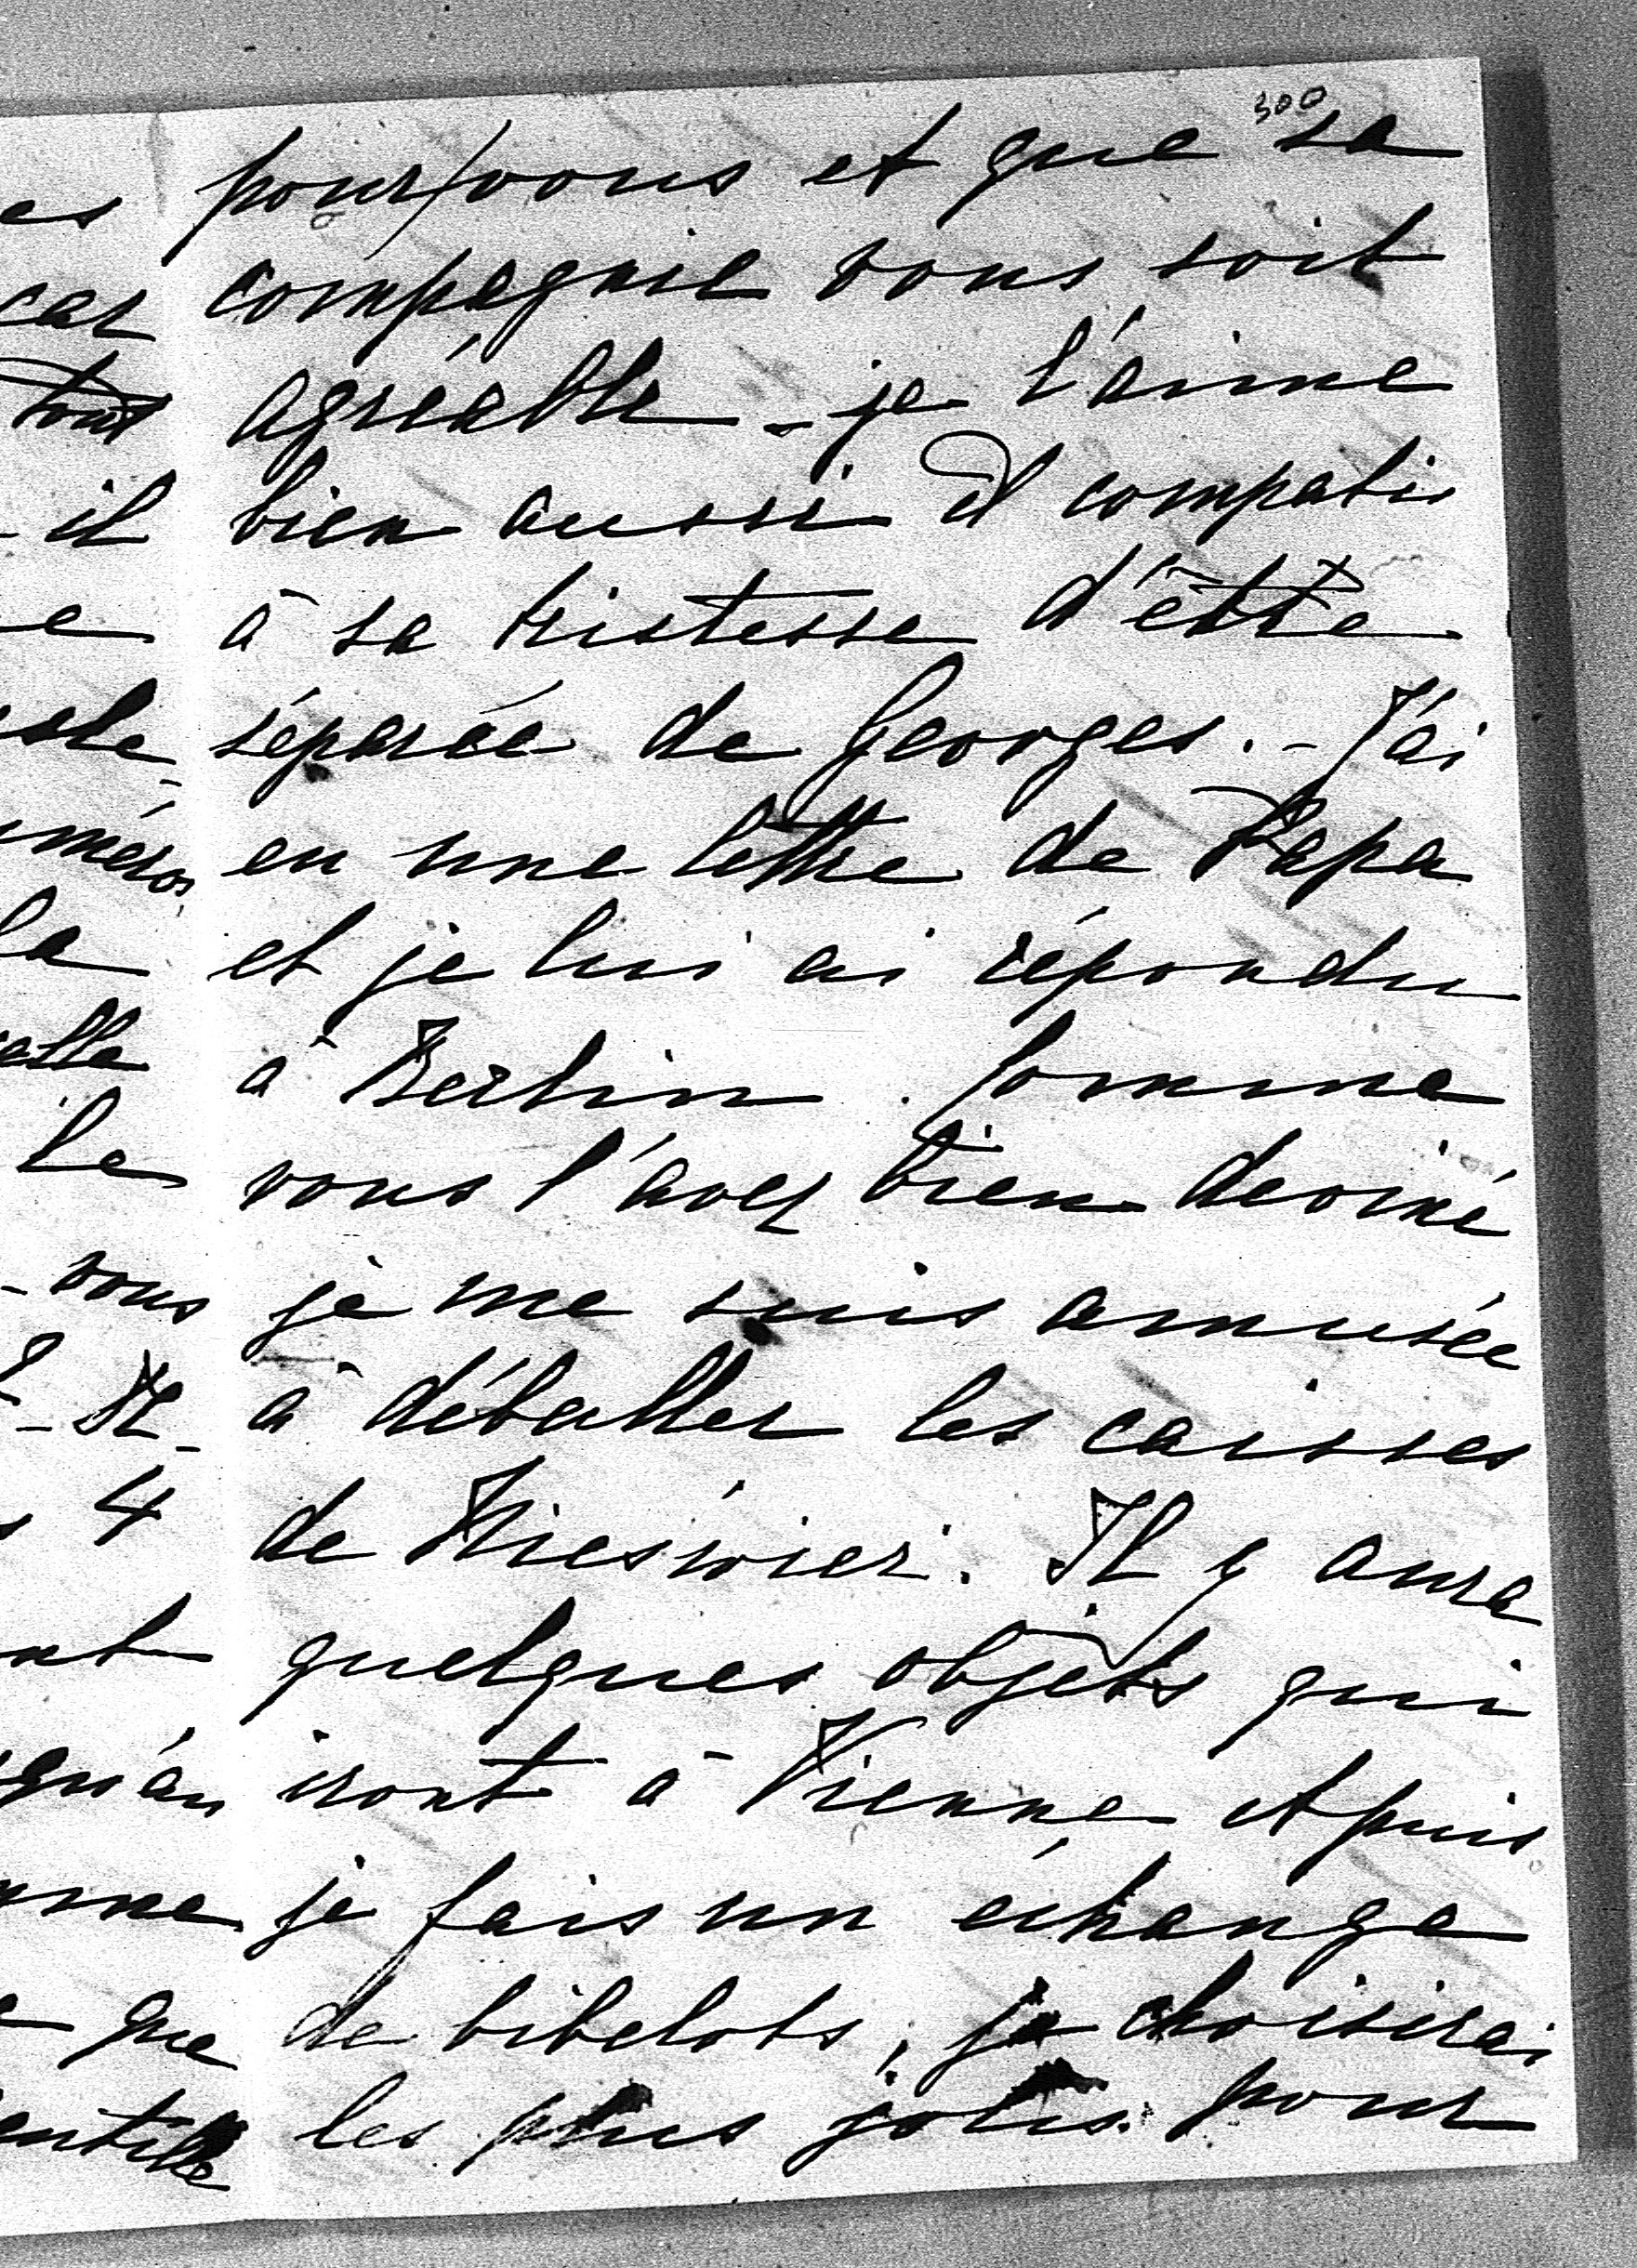 300
pour vous et que sa
compagnie vous soit
agréable - je l'aime
bien aussi et compatis
à sa tristesse d'être
séparée de Georges. - J'ai
eu une lettre de Papa
et je lui ai répondu
à Berlin. Comme
vous l'avez bien deviné
je me suis amusée
à déballer les caisses
de Nieśwież. Il y aura
quelques objets qui
iront à Vienne et puis
je fais un échange
de bibelots, je choisirai
les plus jolis pour
es
car
tout
il
e
la
Le
- vous
- Il -
4
nt
qu'au
que